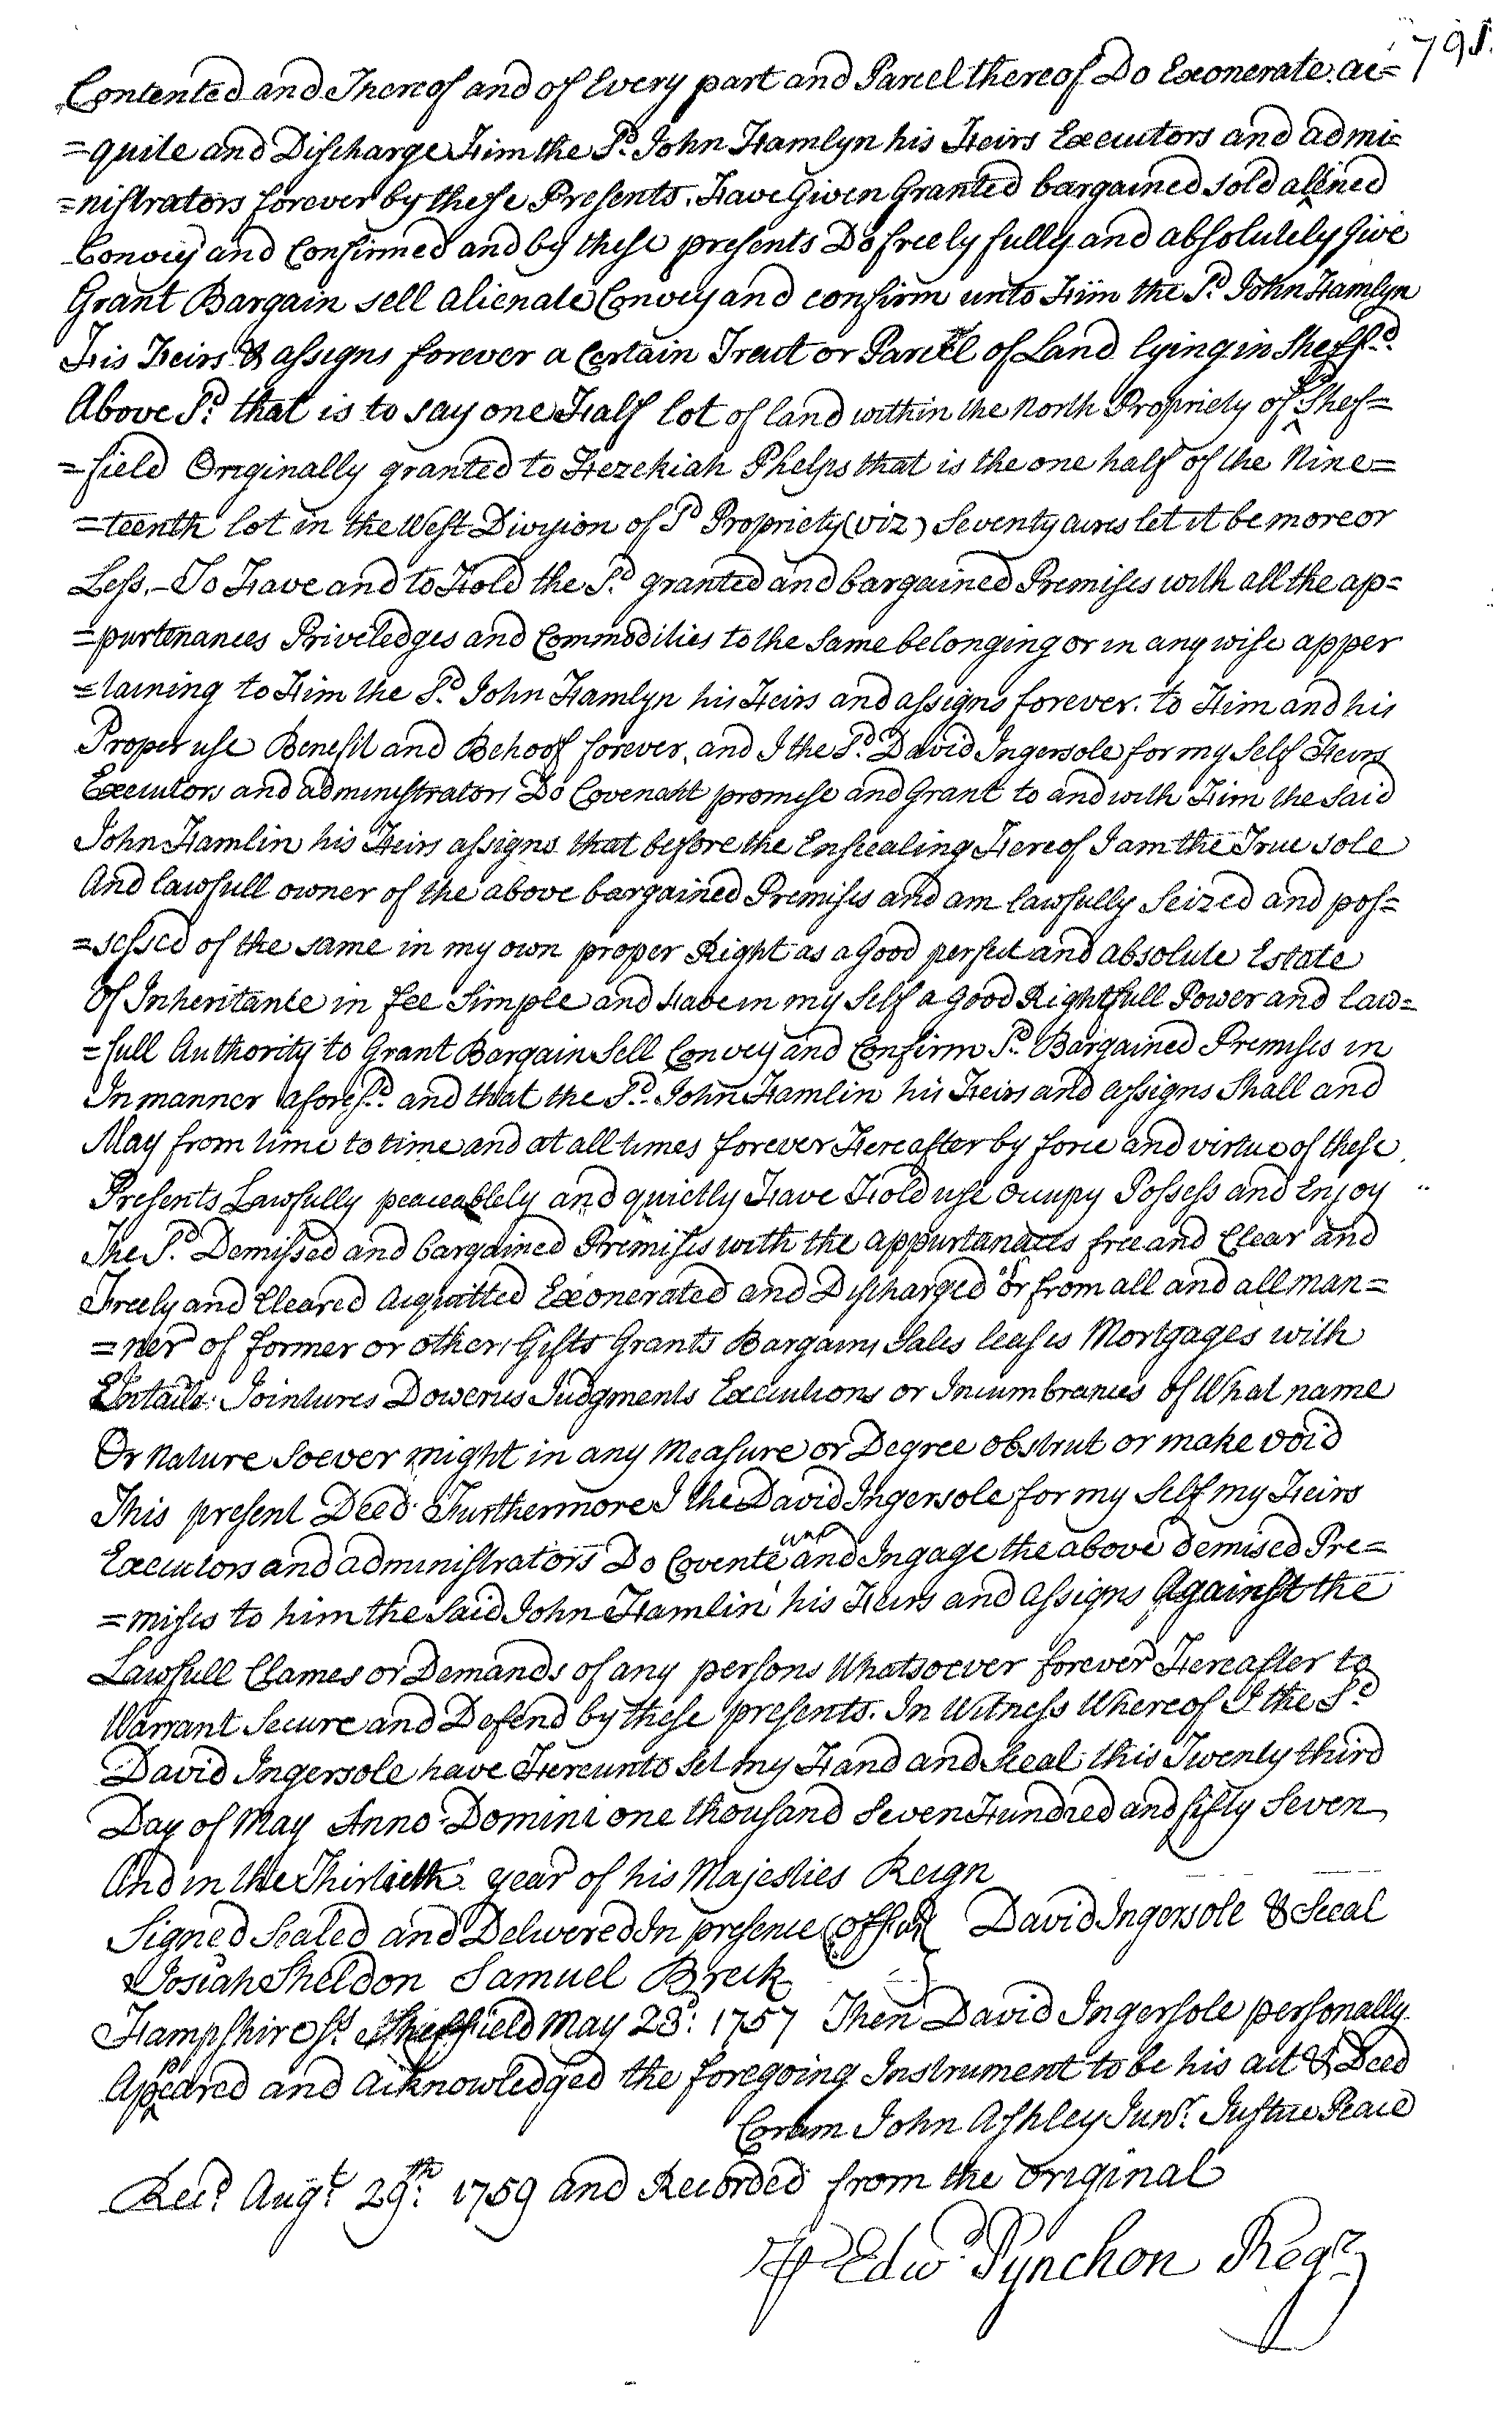 795.
Contented and Thereof and of Every part and Parcel thereof Do Exonerate ac=
=quite and Discharge Him the Sd. John Hamlyn his Heirs Executors and admi=
=nistrators forever by these Presents. Have Given Granted bargained sold aliened
Convey and Confirmed and by these presents Do freely fully and absolutely Give
Grant Bargain sell alienate Convey and confirm unto Him the Sd. John Hamlyn
His Heirs & assigns forever a Certain Tract or Parcel of Land lying in Sheffd.
Above Sd. that is to say one Half lot of land within the North Propriety of Shef=
=field Originally granted to Hezekiah Phelps that is the one half of the Nine=
=teenth lot in the West Division of Sd Propriety (viz) Seventy acres let it be more or
Less.- To Have and to Hold the Sd. granted and bargained Premises with all the ap=
=purtenances Priveledges and Commodities to the same belonging or in any wise apper
=taining to Him the Sd. John Hamlyn his Heirs and assigns forever. to Him and his
Proper use Benefit and Behoof forever, and I the Sd. David Ingersole for my Self Heirs
Executors and administrators Do Covenant promise and Grant to and with Him the Said
John Hamlin his Heirs assigns that before the Ensealing Hereof I am the True sole
And lawfull owner of the above bargained Premises and am lawfully Seized and pos=
=sessed of the same in my own proper Right as a Good perfect and absolute Estate
Of Inheritance in fee Simple and Have in my Self a good Rightfull Power and law=
=full Authority to Grant Bargain Sell Convey and Confirm Sd. Bargained Premises in
In manner aforesd. and that the Sd. John Hamlin his Heirs and assigns Shall and
May from time to time and at all times forever Hereafter by force and virtue of these
Presents Lawfully peaceablely and quietly Have Hold use occupy Possess and Enjoy
The Sd. Demissed and bargained Premises with the appurtanaces free and Clear and
Freely and Cleared Acquitted Exonerated and Discharged of or from all and all man=
=ner of former or other Gifts Grants Bargains Sales leases Mortgages with
Entails. Jointures Doweries Judgments Executions or Incumbrances of What name
Or nature soever might in any Measure or Degree obstrut or make void
This present Deed. Furthermore I the David Ingersole for my Self my Heirs
Executors and administrators Do Covente and Ingage the above demised Pre=
=mises to him the said John Hamlin his Heirs and assigns Against the
Lawfull Clames or Demands of any persons Whatsoever forever Hereafter to
Warrant Secure and Defend by these presents. In Witness Whereof I the Sd
David Ingersole have Hereunto Set my Hand and Seal this Twenty third
Day of May Anno Domini one thousand Seven Hundred and fifty Seven
And in the Thirtieth year of his Majesties Reign
Signed Sealed and Delivered In presence (off us} David Ingersole & Seal
Josiah Sheldon Samuel Breck
Hampshire Ss. Sheffield May 23d: 1757 Then David Ingersole personally
Appeared and acknowledged the foregoing Instrument to be his act & Deed
Coram John Ashley Junr. Justice Peace
Recd. Augt. 29th: 1759 and Recorded from the original
Edwd. Pynchon Regr